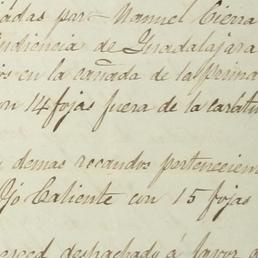 iadas por Manuel Cierra
Audiencia de Guadalajara
os en la cañada de la
on 14 fojas fuera de la caratu
y demas recaudos perteneciem
Ojo Caliente con 15 fojas
erced deshachado á favor d